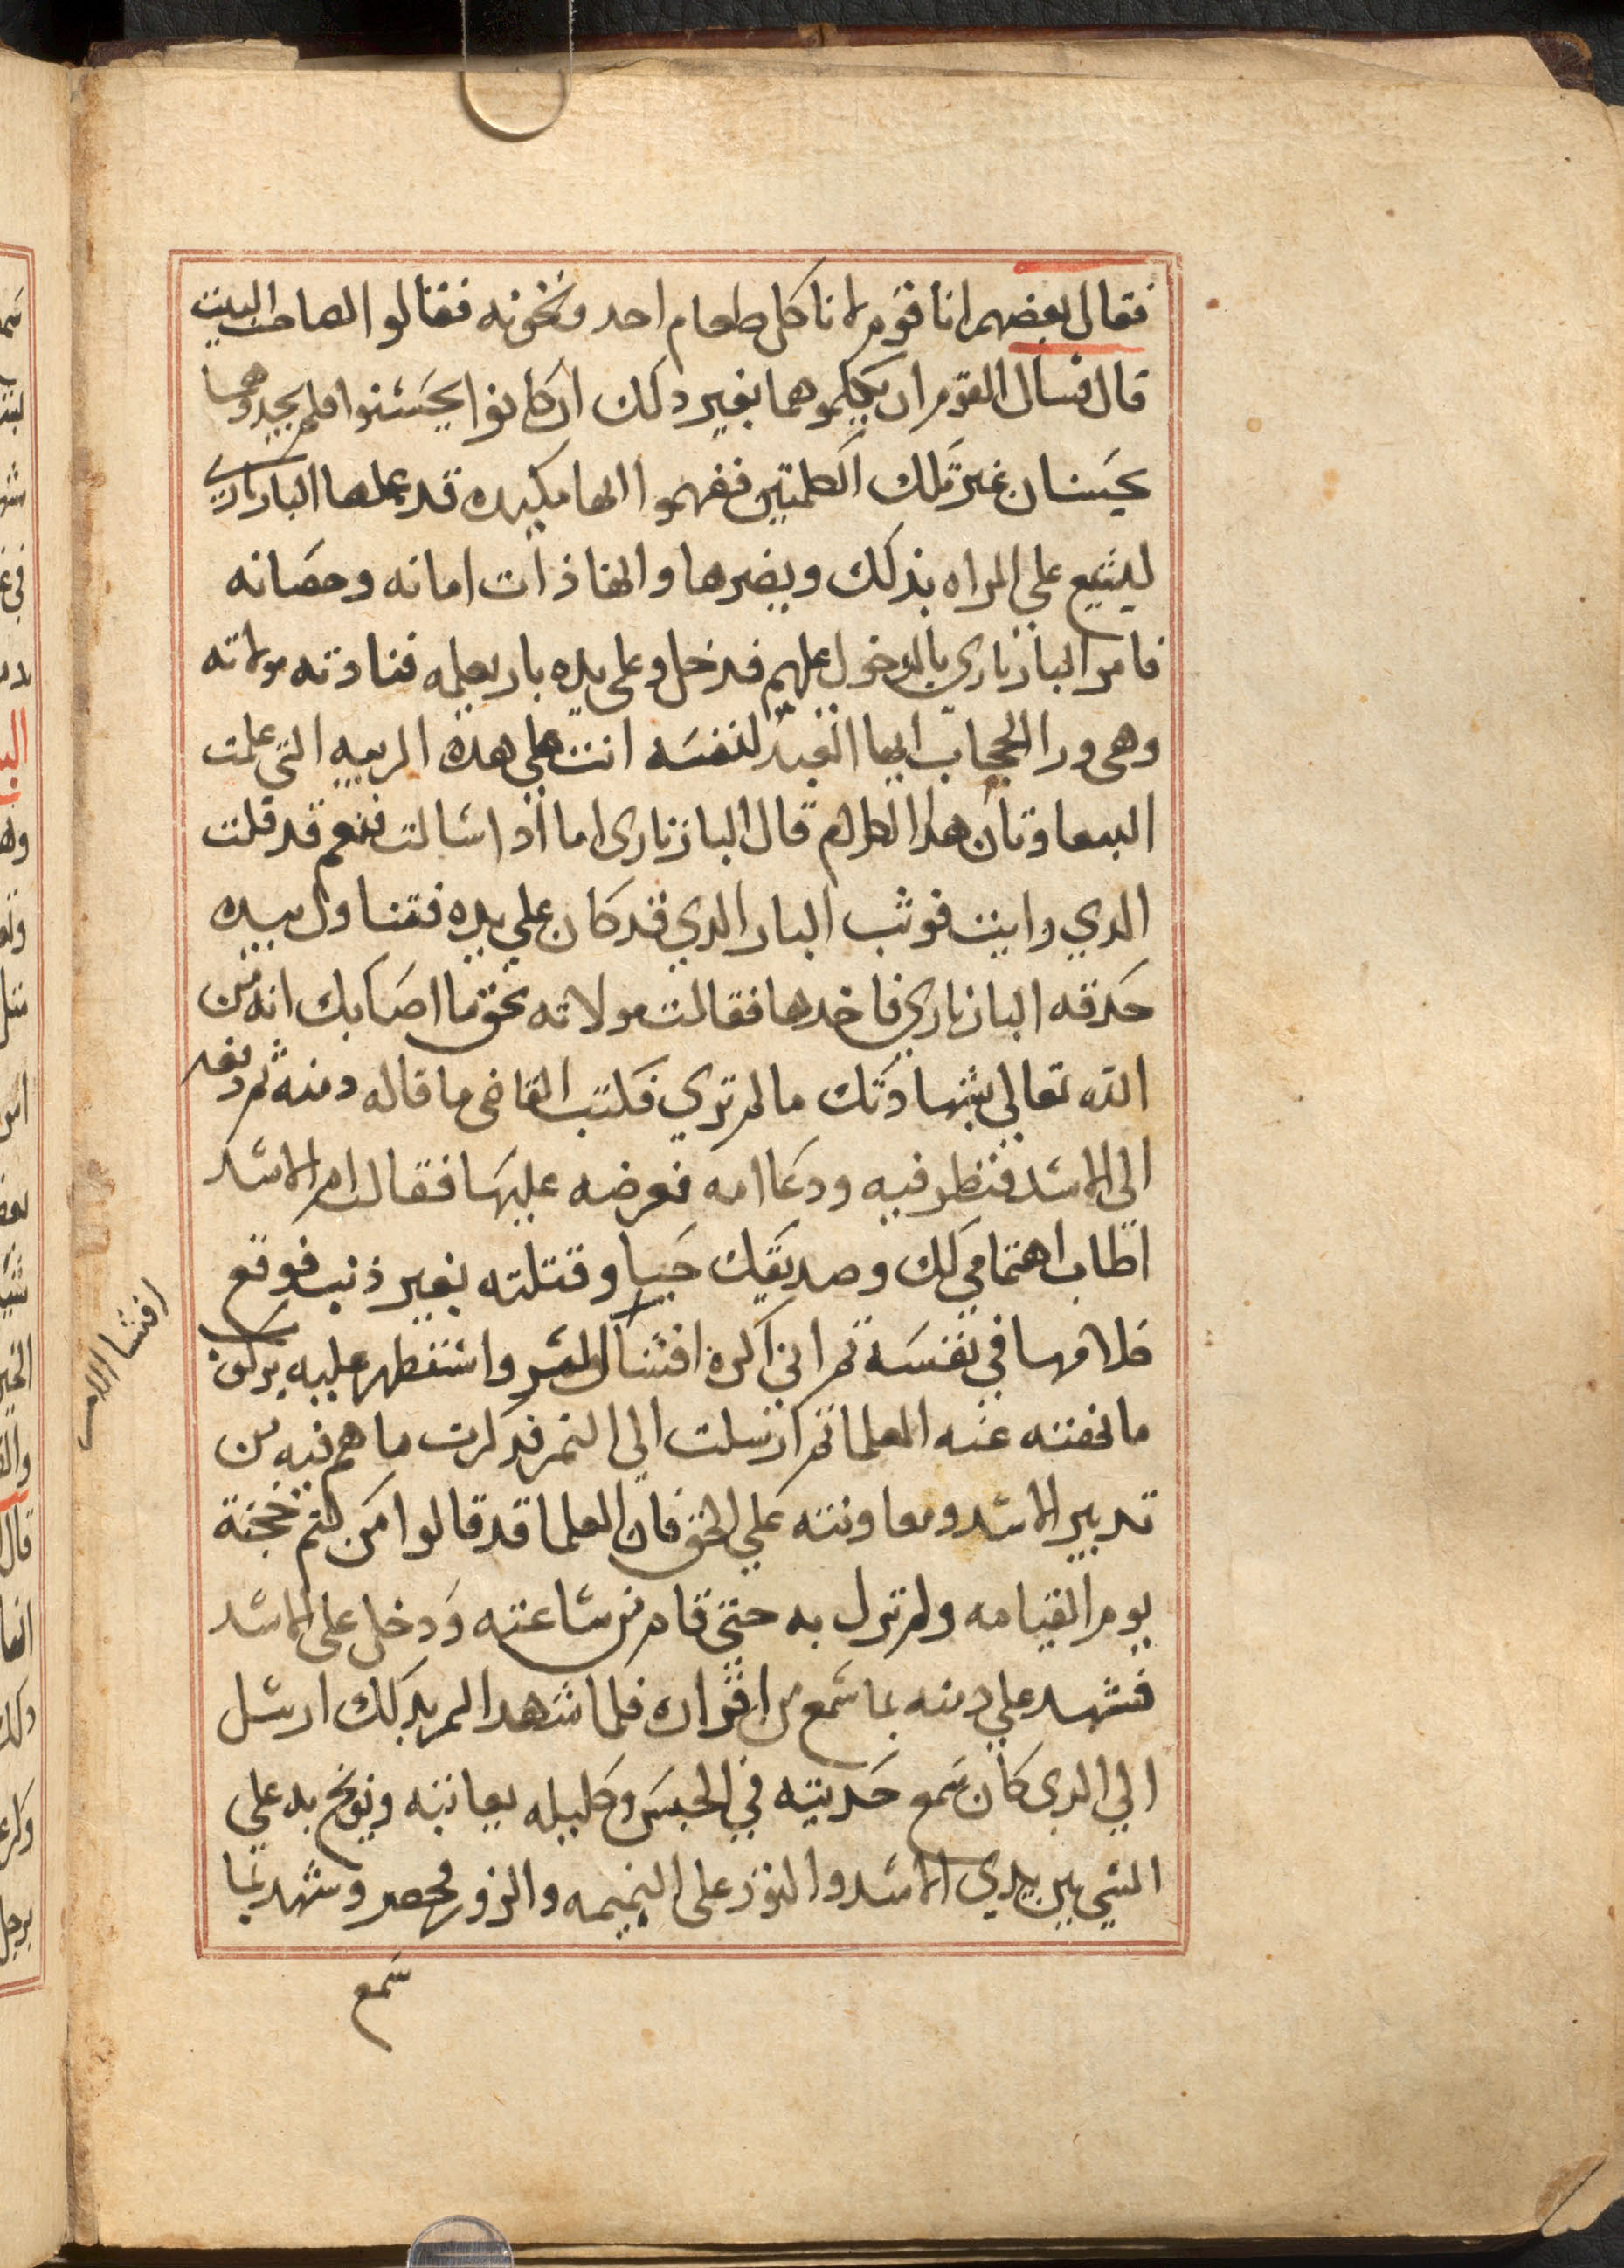 فقال بعضهم انا قوم لا ناكل طعام احد ونخونه فقالوا لصاحب البيت
قال فسال القوم ان يكلموهما بغير دلك ان كانوا يحسنوا فلم يجدوهما
يحسنان غير تلك الكلمتين ففهموا انها مكيده قد عملها البازياري
ليشيع علي المراه بذلك ويضرها وانها ذات امانه وحصانه
فامر البازياري بالدخول عليهم فدخل وعلى يده باز يعلمه فنادته مولاته
وهي ورا الحجاب ايها العبد لنفسه انت علي هذه التي علمت
الببغاوتان هدا الكلام قال البازياري اما اد اسالت فنعم قد قلت
الدي رايت فوثب الباز الدي قد كان علي يده فتناول بيده
حدقه البازياري فاخدها فقالت مولاته بحق ما اصابك انه من
الله تعالى بشهادتك ما لم تري فكتب القاضي ما قاله دمنه ثم
الى الاسد فنظر فيه ودعا امه فعرضه عليها فقالت ام الاسد
اطاب اهتمامي لك وصديقك حبيبا وقتلته بغير ذنب فوقع
كلامها في نفسه ثم اني اكره افشا السر واستظهر عليه بركوب
ما نهت عنه العلما ثم ارسلت الى النمر فدكرت ما هم فيه من
تدبير الاسد ومعاونته علي الحق فان العلما قد قالوا من كتم حجة
يوم القيامه ولم تزل به حتى قام من ساعته ودخل على الاسد
فشهد علي دمنه بما سمع من اقراره فلما شهد النمر بدلك ارسل
الي الدى كان سمع حديثه في الحبس وكليله يعاتبه ويوبخ به علي
السي بين يدي الاسد والنور على النميمه والزور فحضر وشهد بما
سمع
افشا الامر